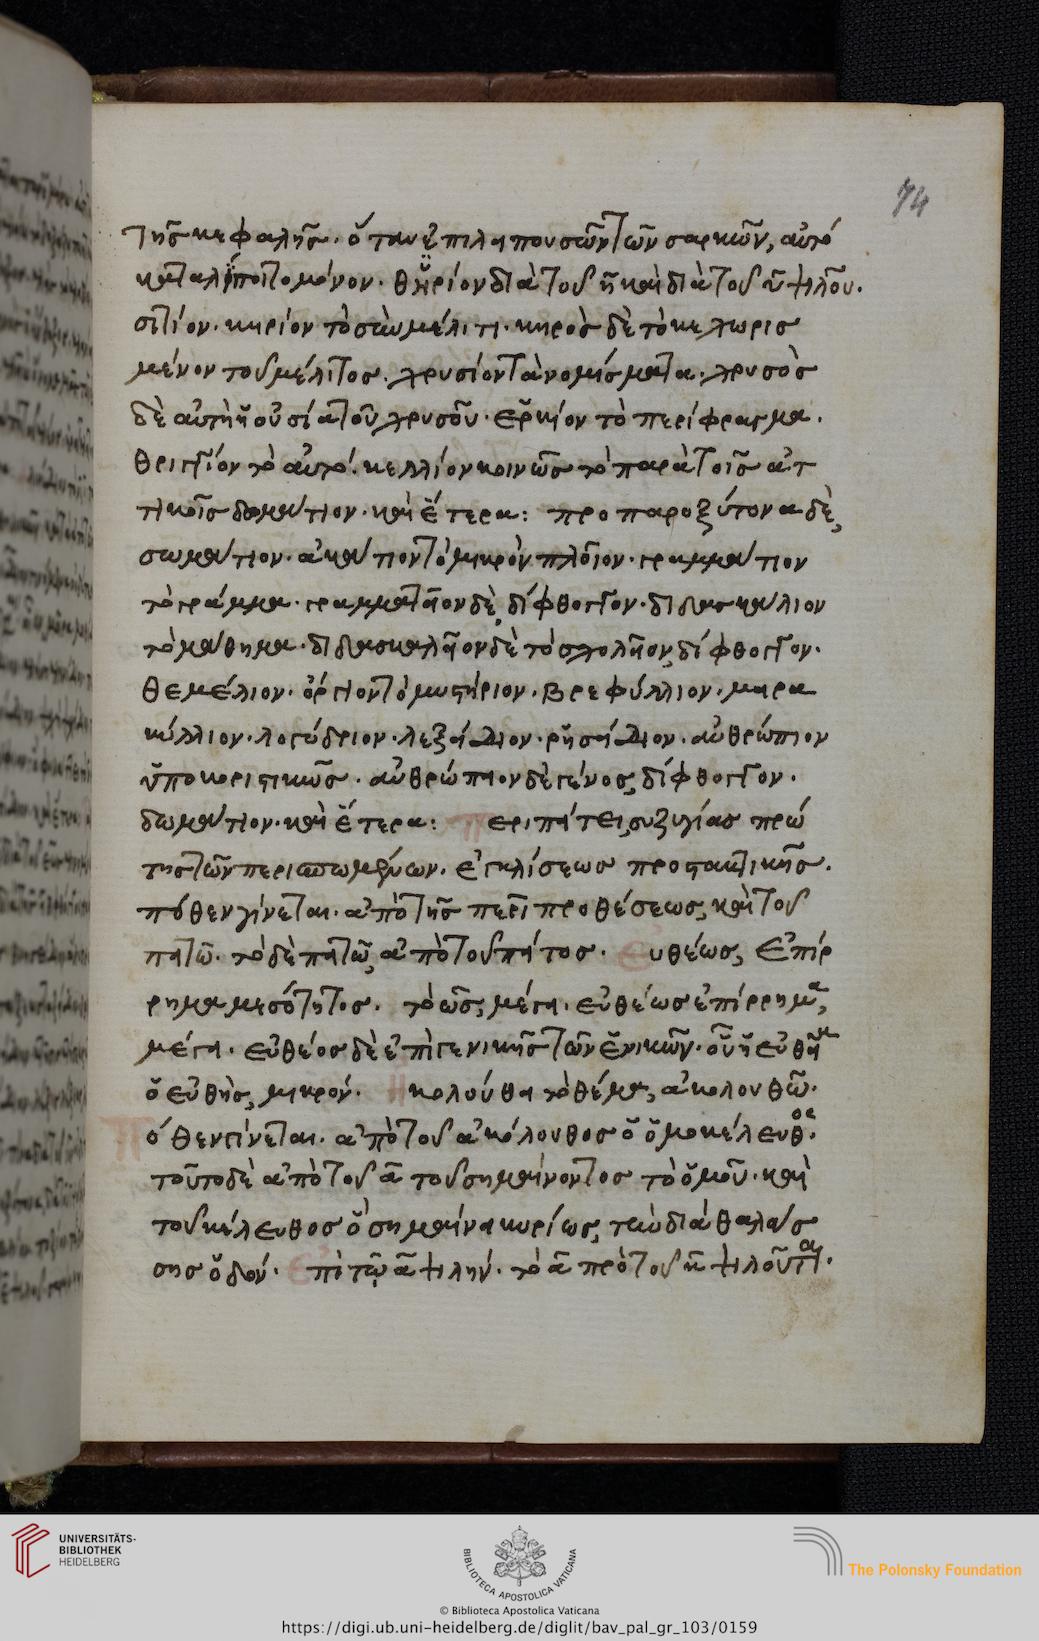 74
τῆς κεφαλῆς· ὅταν ἐπιλειπουσῶν τῶν σαρκῶν, αὐτὸ
καταλιποιτομένον. θηρίον διὰ τοῦ η καὶ διὰ τοῦ υ ψιλοῦ.
σιτίον. κηρίον τὸ σὺν μέλιτι. κηρὸς δὲ τὸ κεχωρισ
μένον τοῦ μέλιτος. χρυσίον τὰ νομίσματα. χρυσὸς
δὲ αὐτὴ ἡ οὐσία τοῦ χρυσοῦ. ἑρκίον τὸ περίφραγμα.
θριγγίον τὸ αὐτό. κελλίον κοινῶς τὸ παρὰ τοῖς ἀτ
τικοῖς δωμάτιον. καὶ ἕτερα: προπαροξύτονα δὲ,
σωμάτιον. ἀκάτιον τὸ μικρὸν πλοῖον. γραμμάτιον
τὸ γράμμα. γραμματεῖον δὲ, δίφθογγον. διδασκάλιον
τὸ μάθημα. διδασκαλεῖον δὲ τὸ σχολεῖον, δίφθογγον.
θεμέλιον. ὄργιον τὸ μυστήριον. βρεφύλλιον. μειρα
κύλλιον. λογύδριον. λεξείδιον. ῥησείδιον. ἀνθρώπιον
ὑποκοριστικῶς. ἀνθρώπειον δὲ γένος, δίφθογγον.
δωμάτιον. καὶ ἕτερα: περιπάτει, συζυγίας πρώ
της τῶν περισπωμένων. ἐγκλίσεως προστακτικῆς.
πόθεν γίνεται. ἀπὸ τῆς περὶ προθέσεως, καὶ τοῦ
πατῶ. τὸ δὲ πατῶ, ἀπὸ τοῦ πάτος. Εὐθέως, ἐπίρ
ρημα μεσότητος. τὸ ως, μέγα. εὐθέως ἐπίρρημα,
μέγα. εὐθέος δὲ ἐπὶ γενικῆς τῶν ἑνικῶν. οὗ ἡ εὐθεῖα
ὁ εὐθὺς, μικρόν. ἠκολούθει τὸ θέμα, ἀκολουθῶ.
πόθεν γίνεται. ἀπὸ τοῦ ἀκόλουθος ὁ ὁμοκέλευθος.
τοῦτο δὲ ἀπὸ τοῦ α τοῦ σημαίνοντος τὸ ὁμοῦ. καὶ
τοῦ κέλευθος ὃ σημαίνει κυρίως, τὴν διὰ θαλάσ
σης ὁδόν. ἐπὶ τῷ α ψιλήν. τὸ α πρὸ τοῦ κ ψιλοῦται.
UNIVERSITÄTS-
BIBLIOTHEK
HEIDELBERG
BIBLIOTECA APOSTOLICA VATICANA
The Polonsky Foundation
© Biblioteca Apostolica Vaticana
https://digi.ub.uni-heidelberg.de/diglit/bav_pal_gr_103/0159